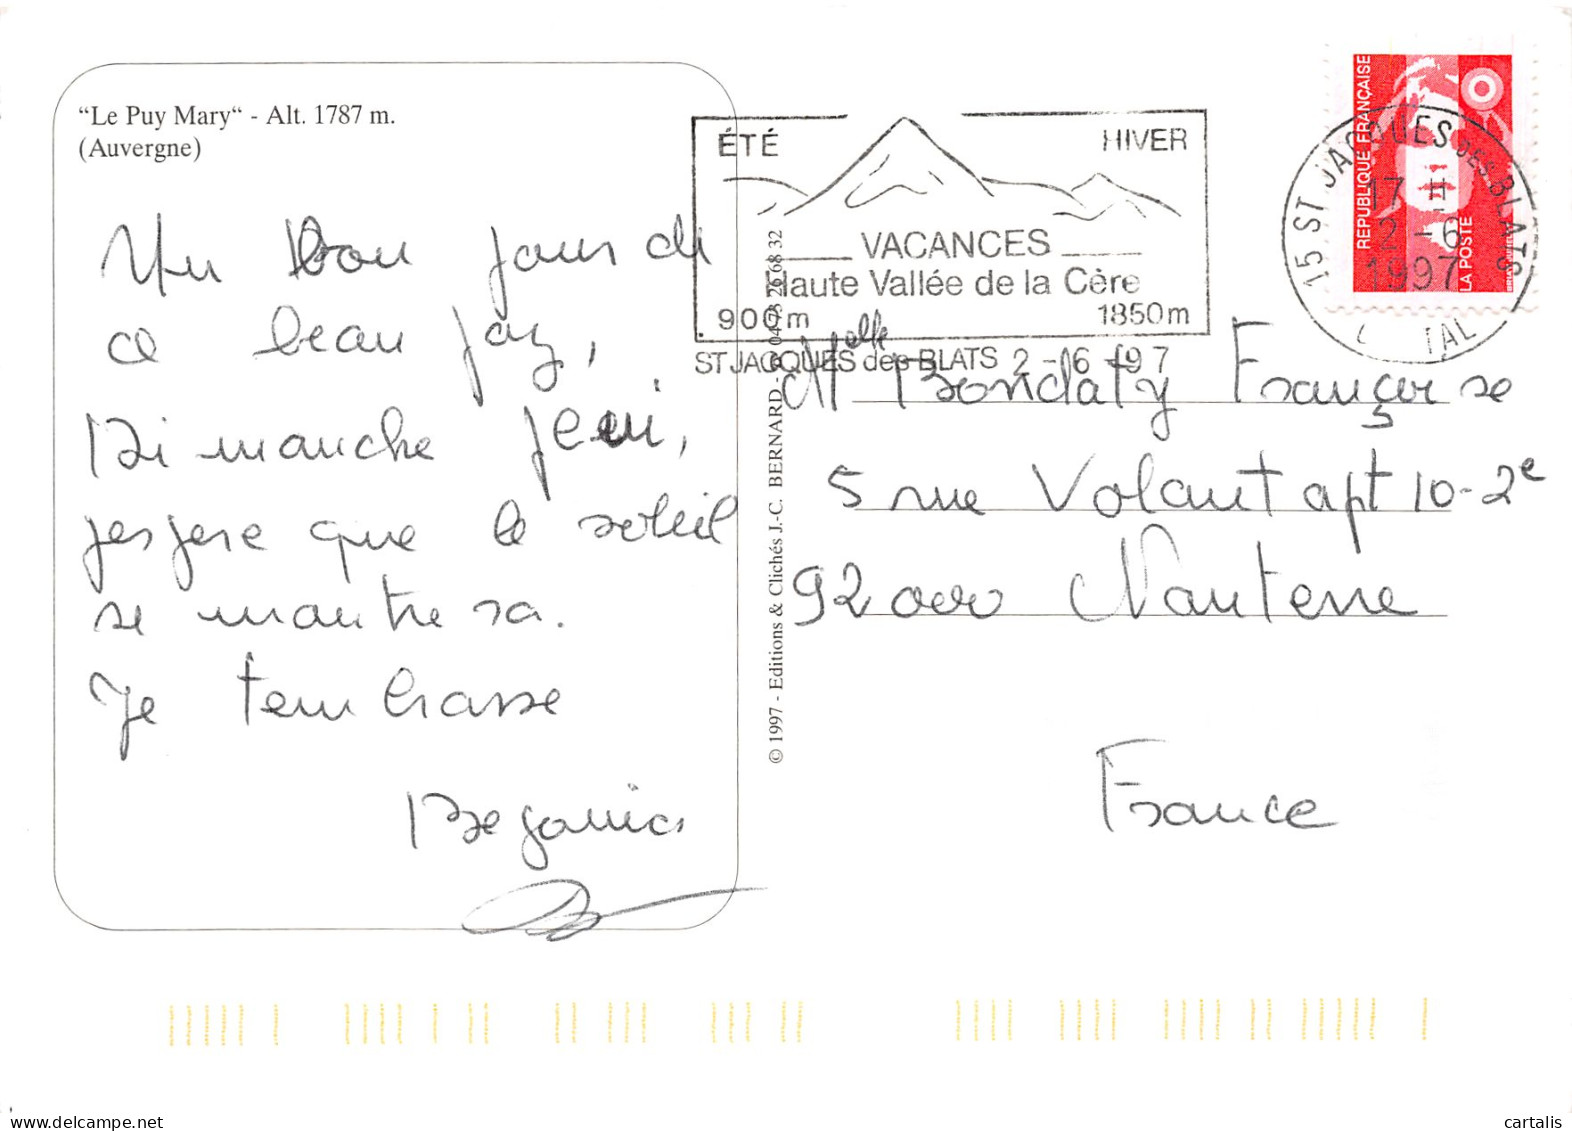 “Le Puy Mary“ - Alt. 1787 m.
(Auvergne)
Un bon jour de
ce beau pay,
Di manche
jespere que le soleil
se montre ra.
Je tembrasse
ÉTÉ HIVER
VACANCES
Haute Vallée de la Cère
900m 1850m
ST JACQUES des BLATS 2-6-97
REPUBLIQUE FRANÇAISE
LA POSTE
15 ST JACQUES DES BLATS
17 H
2 -6
1997
CANTAL
© 1997 - Editions & Clichés J.-C. BERNARD - 04 73 26 68 32
Melle Bondaty Françoise
5 rue Volant apt 10-2e
92000 Nanterre
France
cartalis